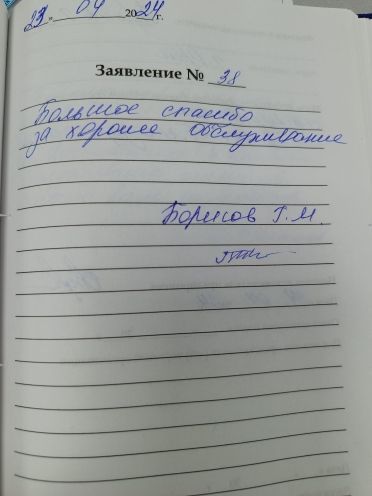 23 " 04 2024г.
Заявление № 38
Большое спасибо
за хорошее обслуживание
Борисов Г.М.